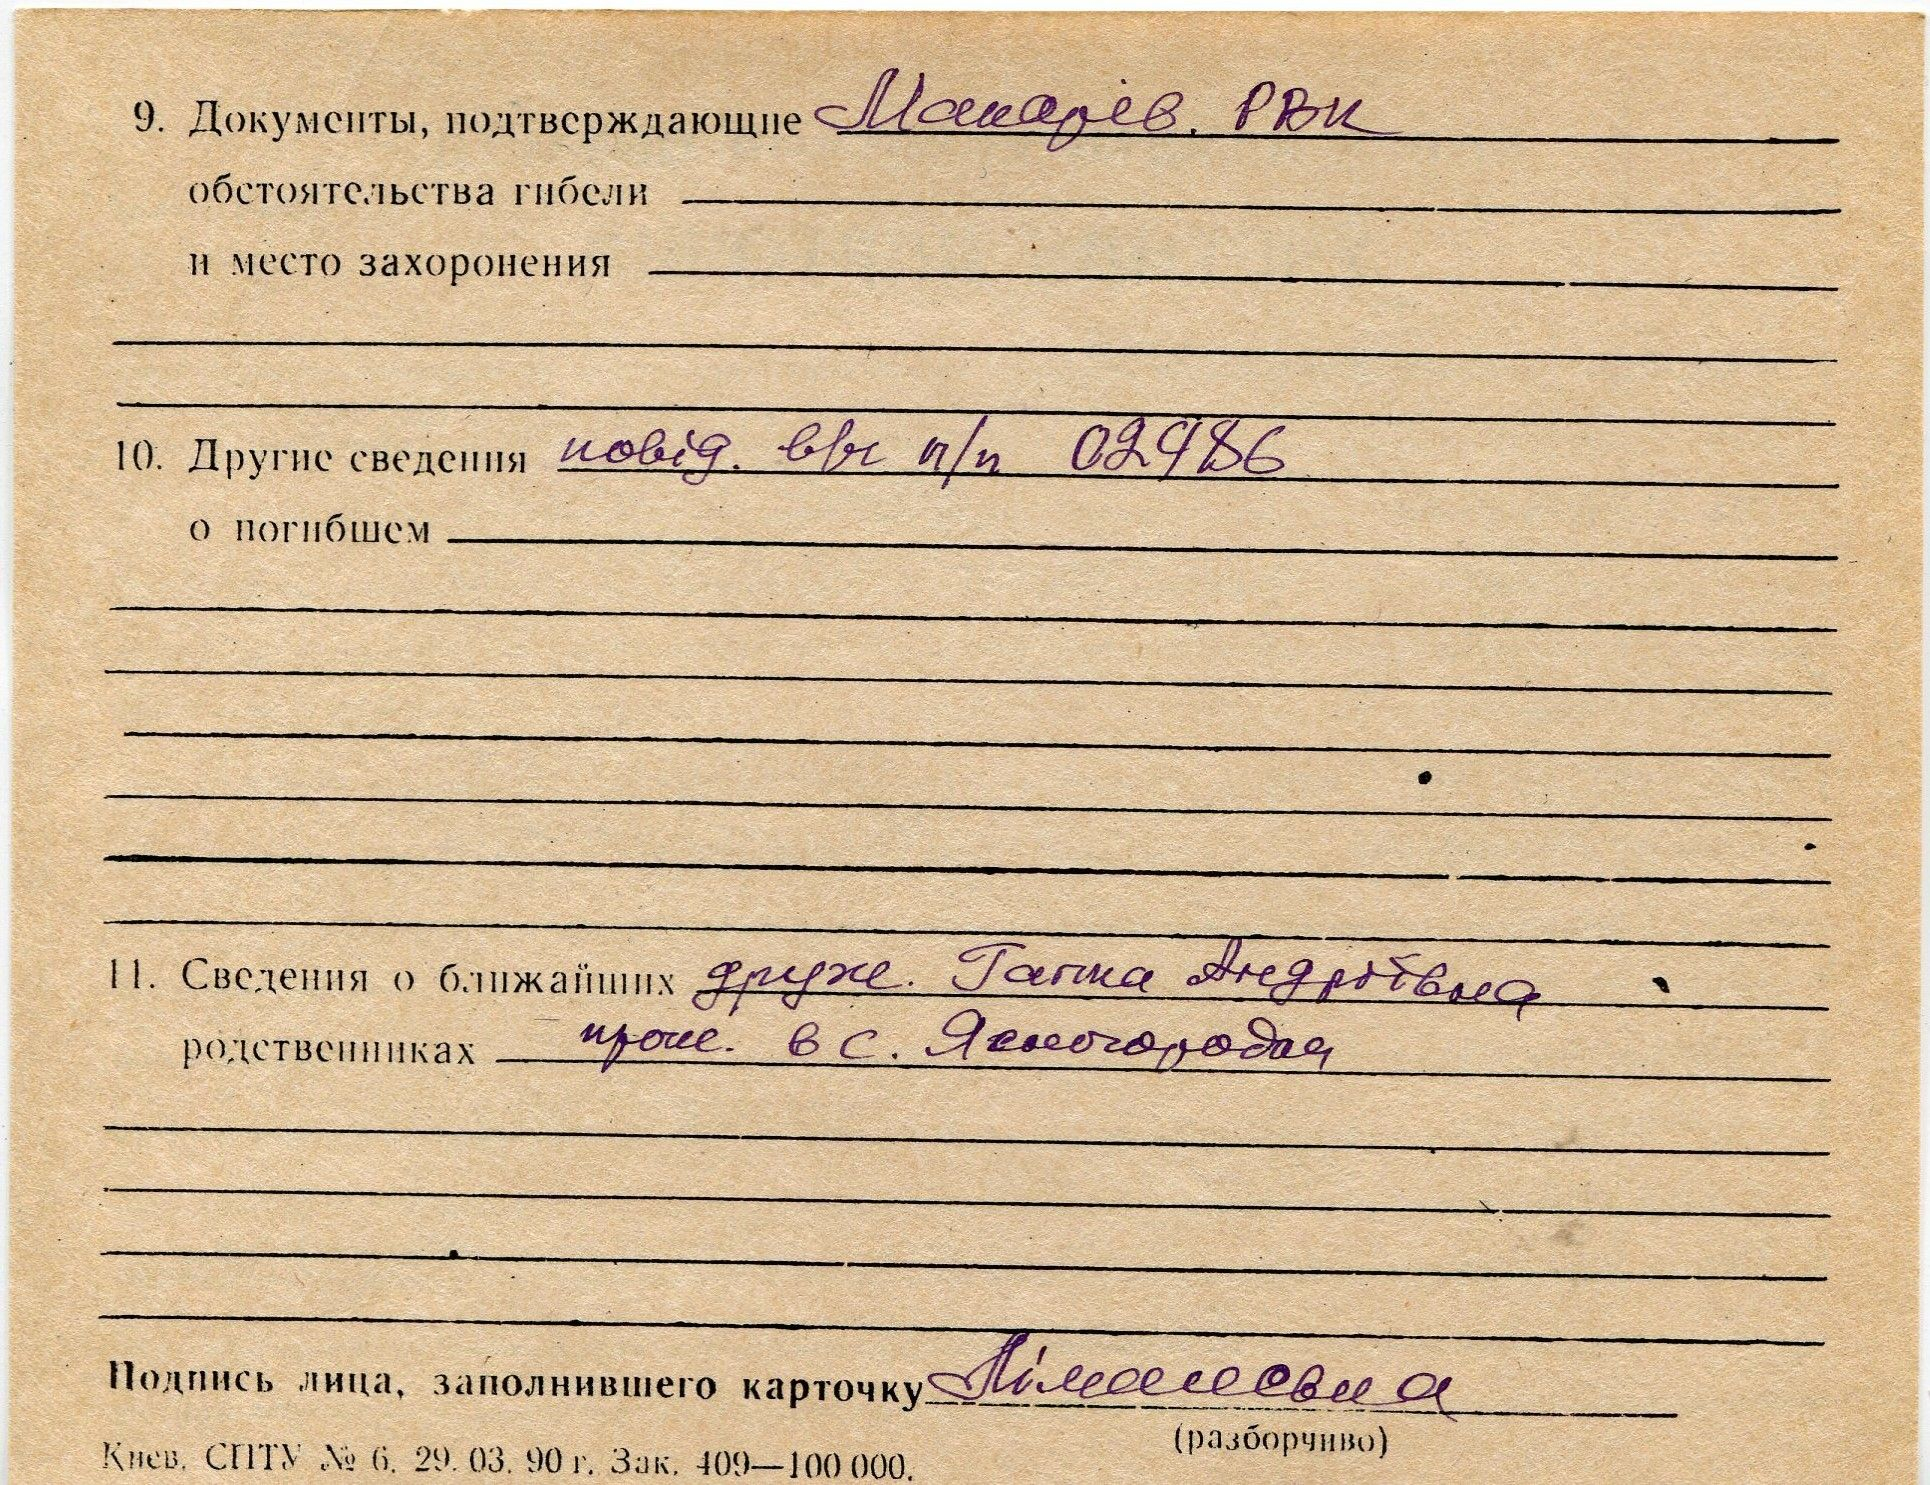 9. Документы, подтверждающие Макарів. РВК
обстоятельства гибели
и место захоронения
10. Другие сведения повід. в/ч п/п 02486
о погибшем
11. Сведения о ближайших друж. Ганна Андріївна
родственниках прож. в с. Ясногородка
Подпись лица, заполнившего карточку
(разборчиво)
Киев. СПТУ № 6. 29. 03. 90 г. Зак. 409—100 000.